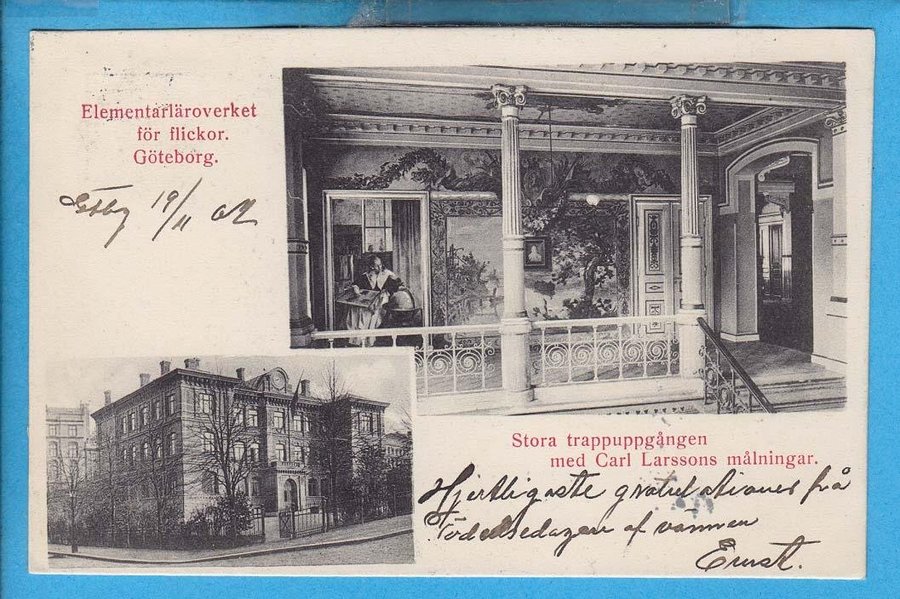 Elementarläroverket
för flickor.
Göteborg.
Göteby 19/11 02
Stora trappuppgången
med Carl Larssons målningar.
Hjertligaste gratulationer på
Födelsedagen af vännen
Ernst.